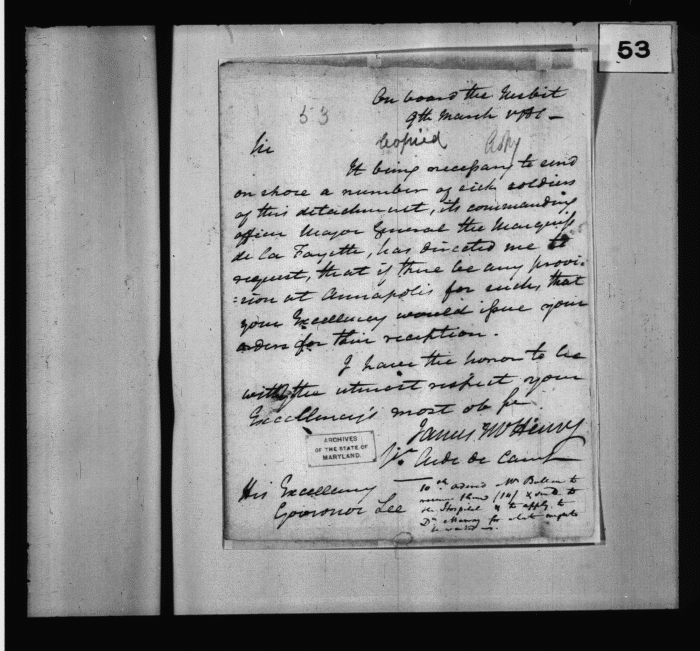 53
53
On board the Nesbit
9th March 1781 -
Copied
Sir
It being necessary to send
on shore a number of sick soldiers
of this detachment, its commanding
officer Major General the Marquiss
de la Fayette, has directed me to
request, that if there be any provi-
:sion at Annapolis for such, that
your Excellency would issue your
orders for their reception.
I have the honor to be
with the utmost respect your
Excellency's most ob Se
James McHenry
Aide de Camp
ARCHIVES
OF THE STATE OF
MARYLAND.
His Excellency
Governor Lee
10th Mr Bullen to
receive them (14) & send to
the Hospital & to apply to
Dr Murray for what